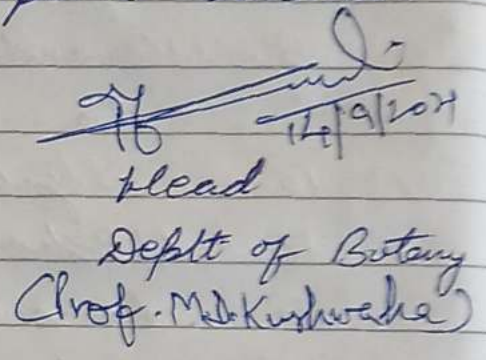 14/9/2021
Head
Deptt of Botany
(Prof. M.D. Kushwaha)